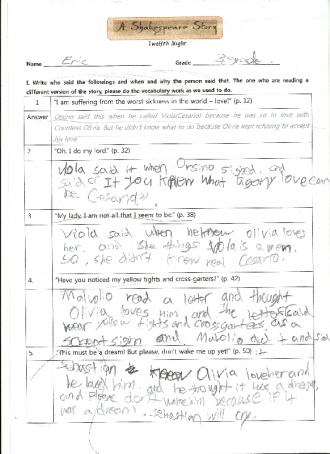 A Shakespeare Story
Twelfth Night
Name Eric Grade 3grade
1. Write who said the followings and when and why the person said that. The one who are reading a
different version of the story, please do the vocabulary work as we used to do.
1 "I am suffering from the worst sickness in the world – love!" (p. 12)
Answer Orsino said this when he called Viola(Cesario) because he was so in love with
Countess Olivia. But he didn't know what to do because Olivia kept refusing to accept
his love.
2 "Oh, I do my lord." (p. 32)
Viola said it when Orsino sighed, and
said "If you knew what agony love can
be Cesario".
3 "My lady, I am not all that I seem to be." (p. 38)
Viola said when he knew olivia loves
her, and she things Viola is a men.
So, she didn't knew real Cesario.
4. "Have you noticed my yellow tights and cross-garters?" (p. 42)
Malvolio read a letter and thought
Olivia loves him, and the letter said
wear yellow tights and cross garters as a
secret sign and Malvolio did it and said
it
5. "This must be a dream! But please, don't wake me up yet!" (p. 50)
Sebastian knew Olivia love her and
he loved him, and he thought it was a dream,
and please don't wake him because if it
was a dream... Sebastian will cry.